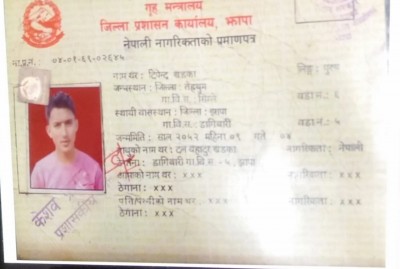 गृह मन्त्रालय
जिल्ला प्रशासन कार्यालय, झापा
नेपाली नागरिकताको प्रमाणपत्र
ना.प्र.नं. ०४-०१-६६-०२६४५
नाम थर : दिपेन्द्र खडका लिङ्ग : पुरुष
जन्मस्थान : जिल्ला : तेह्रथुम
गा.वि.स. : वडा नं. : ६
स्थायी वासस्थान : जिल्ला : झापा
गा.वि.स. : डाँगिबारी वडा नं. : ५
जन्ममिति : साल २०५२ महिना ०९ गते ०४
बाबुको नाम थर : टन बहादुर खडका नागरिकता : नेपाली
ठेगाना : डाँगिबारी गा.वि.स. - ५, झापा
आमाको नाम थर : xxx नागरिकता : xxx
ठेगाना : xxx
पति/पत्नीको नाम थर : xxx नागरिकता : xxx
ठेगाना : xxx
केशव
प्रशासकीय